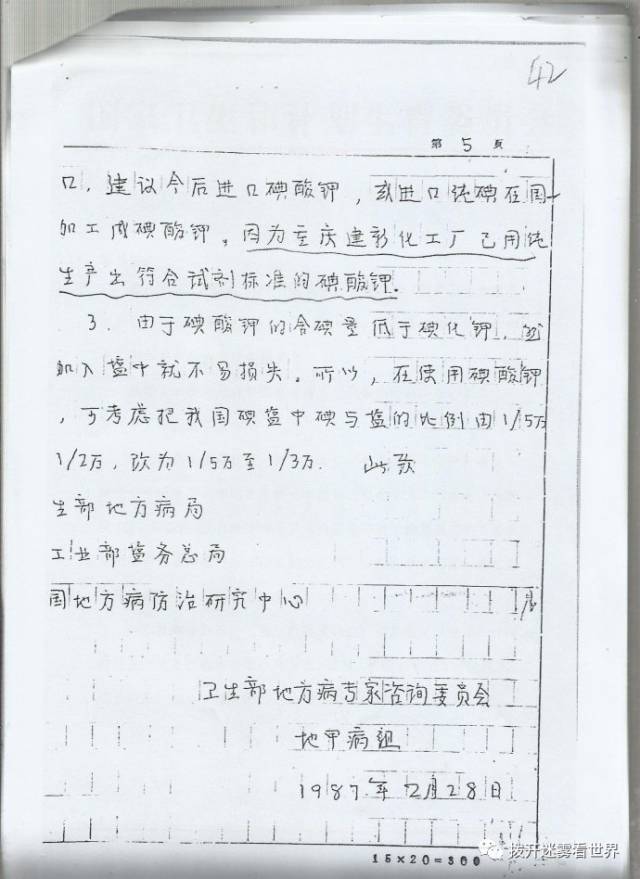 42
第 5 頁
口，建议今后进口碘酸钾，或进口纯碘在国
加工成碘酸钾。因为重庆建彩化工厂已用纯
生产出符合试剂标准的碘酸钾。
3．由于碘酸钾的含碘量低于碘化钾，
加入盐中就不易损失。所以，在使用碘酸钾
，可考虑把我国碘盐中碘与盐的比例由1/5万
1/2万，改为1/5万至1/3万． 此致
生部地方病局
工业部盐务总局
国地方病防治研究中心
卫生部地方病专家咨询委员会
地甲病组
1987年2月28日
15×20=300
拨开迷雾看世界